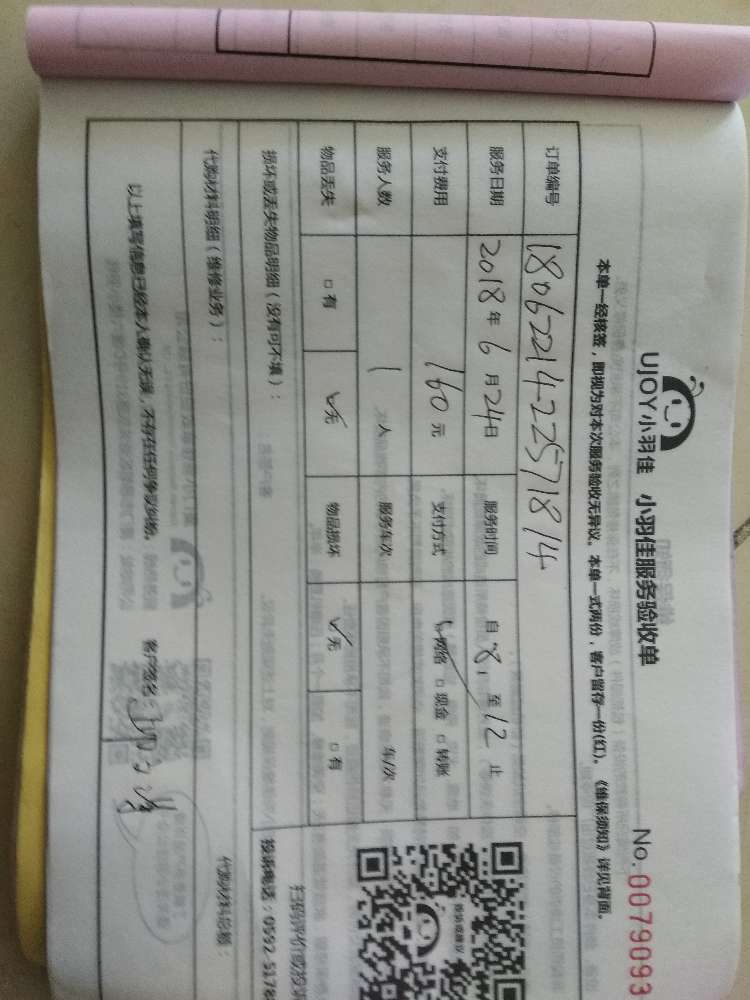 UJOY小羽佳 小羽佳服务验收单
No.0079093
本单一经核签，即视为对本次服务验收无异议。本单一式两份，客户留存一份(红)。《维保须知》详见背面。
订单编号 1806221422571814
服务日期 2018年6月24日 服务时间 自8,至12止
支付费用 160元 支付方式 ☑网络 □现金 □转账
服务人数 1人 服务车次 车/次
物品丢失 □有 ☑无 物品损坏 ☑无 □有
损坏或丢失物品明细（没有可不填）：
扫码评价或投
投诉电话：0592-5178
代购材料明细（维修业务）：
代购材料总额：
以上填写信息已经本人确认无误，不存在任何争议纠纷。
客户签名：